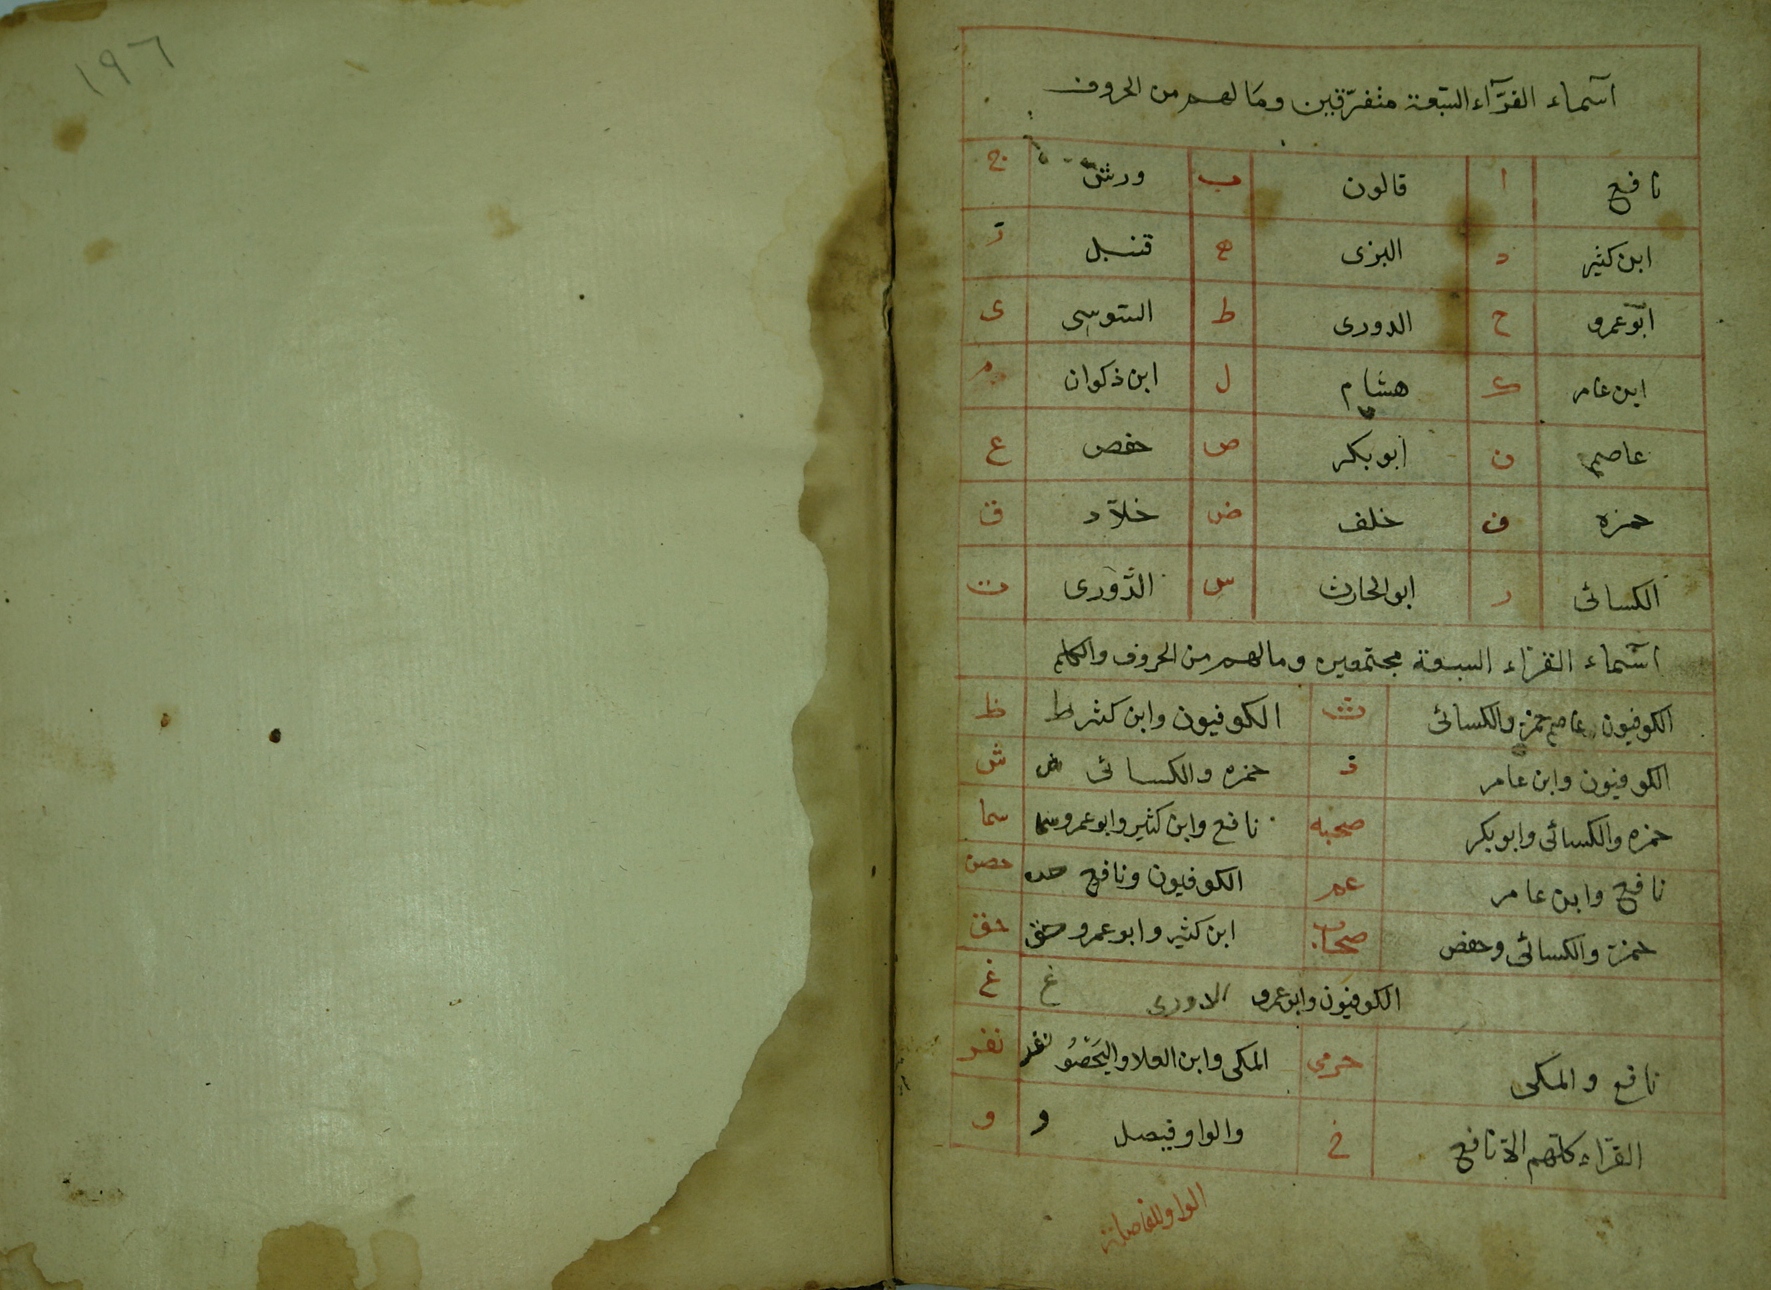 ١٩٦
اسماء القرّآء السبعة متفرّقين وما لهم من الحروف
نافع ا قالون ب ورش ج
ابن كثير د البزى ه قنبل ز
ابو عمرو ح الدورى ط السوسى ى
ابن عامر ك هشام ل ابن ذكوان م
عاصم ن ابو بكر ص حفص ع
حمزه ف خلف ض خلاّد ق
الكسائى ر ابو الحارث س الدّورى ت
اسماء القراء السبعة مجتمعين وما لهم من الحروف والكلم
الكوفيون عاصم حمزة والكسائى ث الكوفيون وابن كثير ظ ظ
الكوفيون وابن عامر ذ حمزه والكسائى ش ش
حمزه والكسائى وابو بكر صحبه نافع وابن كثير وابو عمرو سما سما
نافع وابن عامر عم الكوفيون ونافع حصن
حمزة والكسائى وحفص صحاب ابن كثير وابو عمرو حق حق
الكوفيون وابو عمرو الدورى غ غ
نافع والمكى حرمى المكى وابن العلا واليَحْصُو نفر نفر
القرّاء كلّهم الاّ نافع خ والواو فيصل و و
الواو للفاصلة